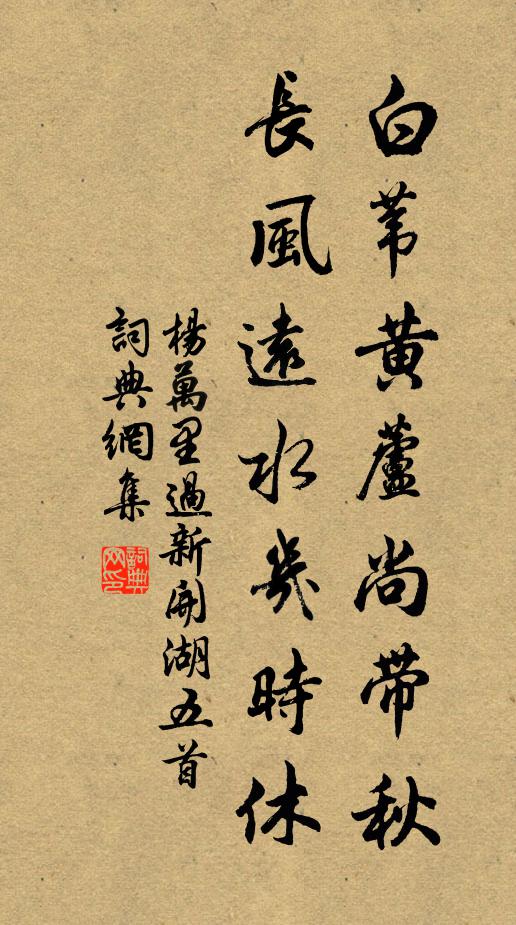 白葦黄蘆尚带秋
長風遠水幾時休
楊萬里過新開湖五首
詞典網集
詞典网印